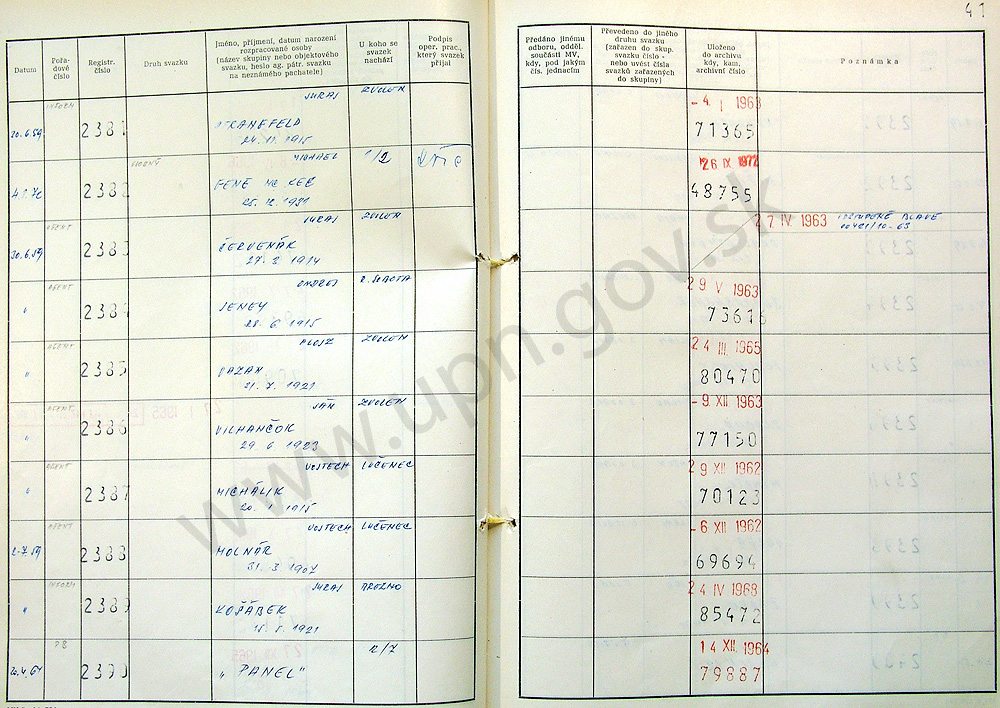 41
Datum
Pořa-
dové
číslo
Registr.
číslo
Druh svazku
Jméno, příjmení, datum narození
rozpracované osoby
(název skupiny nebo objektového
svazku, heslo ag. pátr. svazku
na neznámého pachatele)
U koho se
svazek
nachází
Podpis
oper. prac.,
který svazek
přijal
Předáno jinému
odboru, odděl.
součásti MV,
kdy, pod jakým
čís. jednacím
Převedeno do jiného
druhu svazku
(zařazen do skup.
svazku číslo -
nebo uvést čísla
svazků zařazených
do skupiny)
Uloženo
do archivu
kdy, kam,
archivní číslo
Poznámka
INFORM JURAJ ZVOLEN - 4. I 1963
20.6.59 2381 71365
24.11.1915
MICHAEL 1/2 26 IX 1972
2382 48755
25.12.1921
AGENT JURAJ ZVOLEN 27. IV. 1963
30.6.59 2383 ČERVENÁK
27.3.1914
AGENT ONDREJ R. SOBOTA 29. V 1963
" 2384 JENEY 73616
28.6.1915
AGENT ALOJZ ZVOLEN 24 III. 1965
" 2385 80470
21.7.1921
AGENT JÁN ZVOLEN - 9. XII. 1963
" 2386 VILHANČOK 77150
29.6.1923
AGENT VOJTECH LUČENEC 29 XII. 1962
" 2387 MICHÁLIK 70123
20.1.1915
AGENT VOJTECH LUČENEC - 6 XII. 1962
2.7.59 2388 MOLNÁR 69694
31.3.1907
INFORM JURAJ BREZNO 24 IV 1968
" 2389 KOŠÁBEK 85472
15.5.1921
PB 2/7 14 XII. 1964
20.4.61 2390 "PANEL" 79887
www.upn.gov.sk